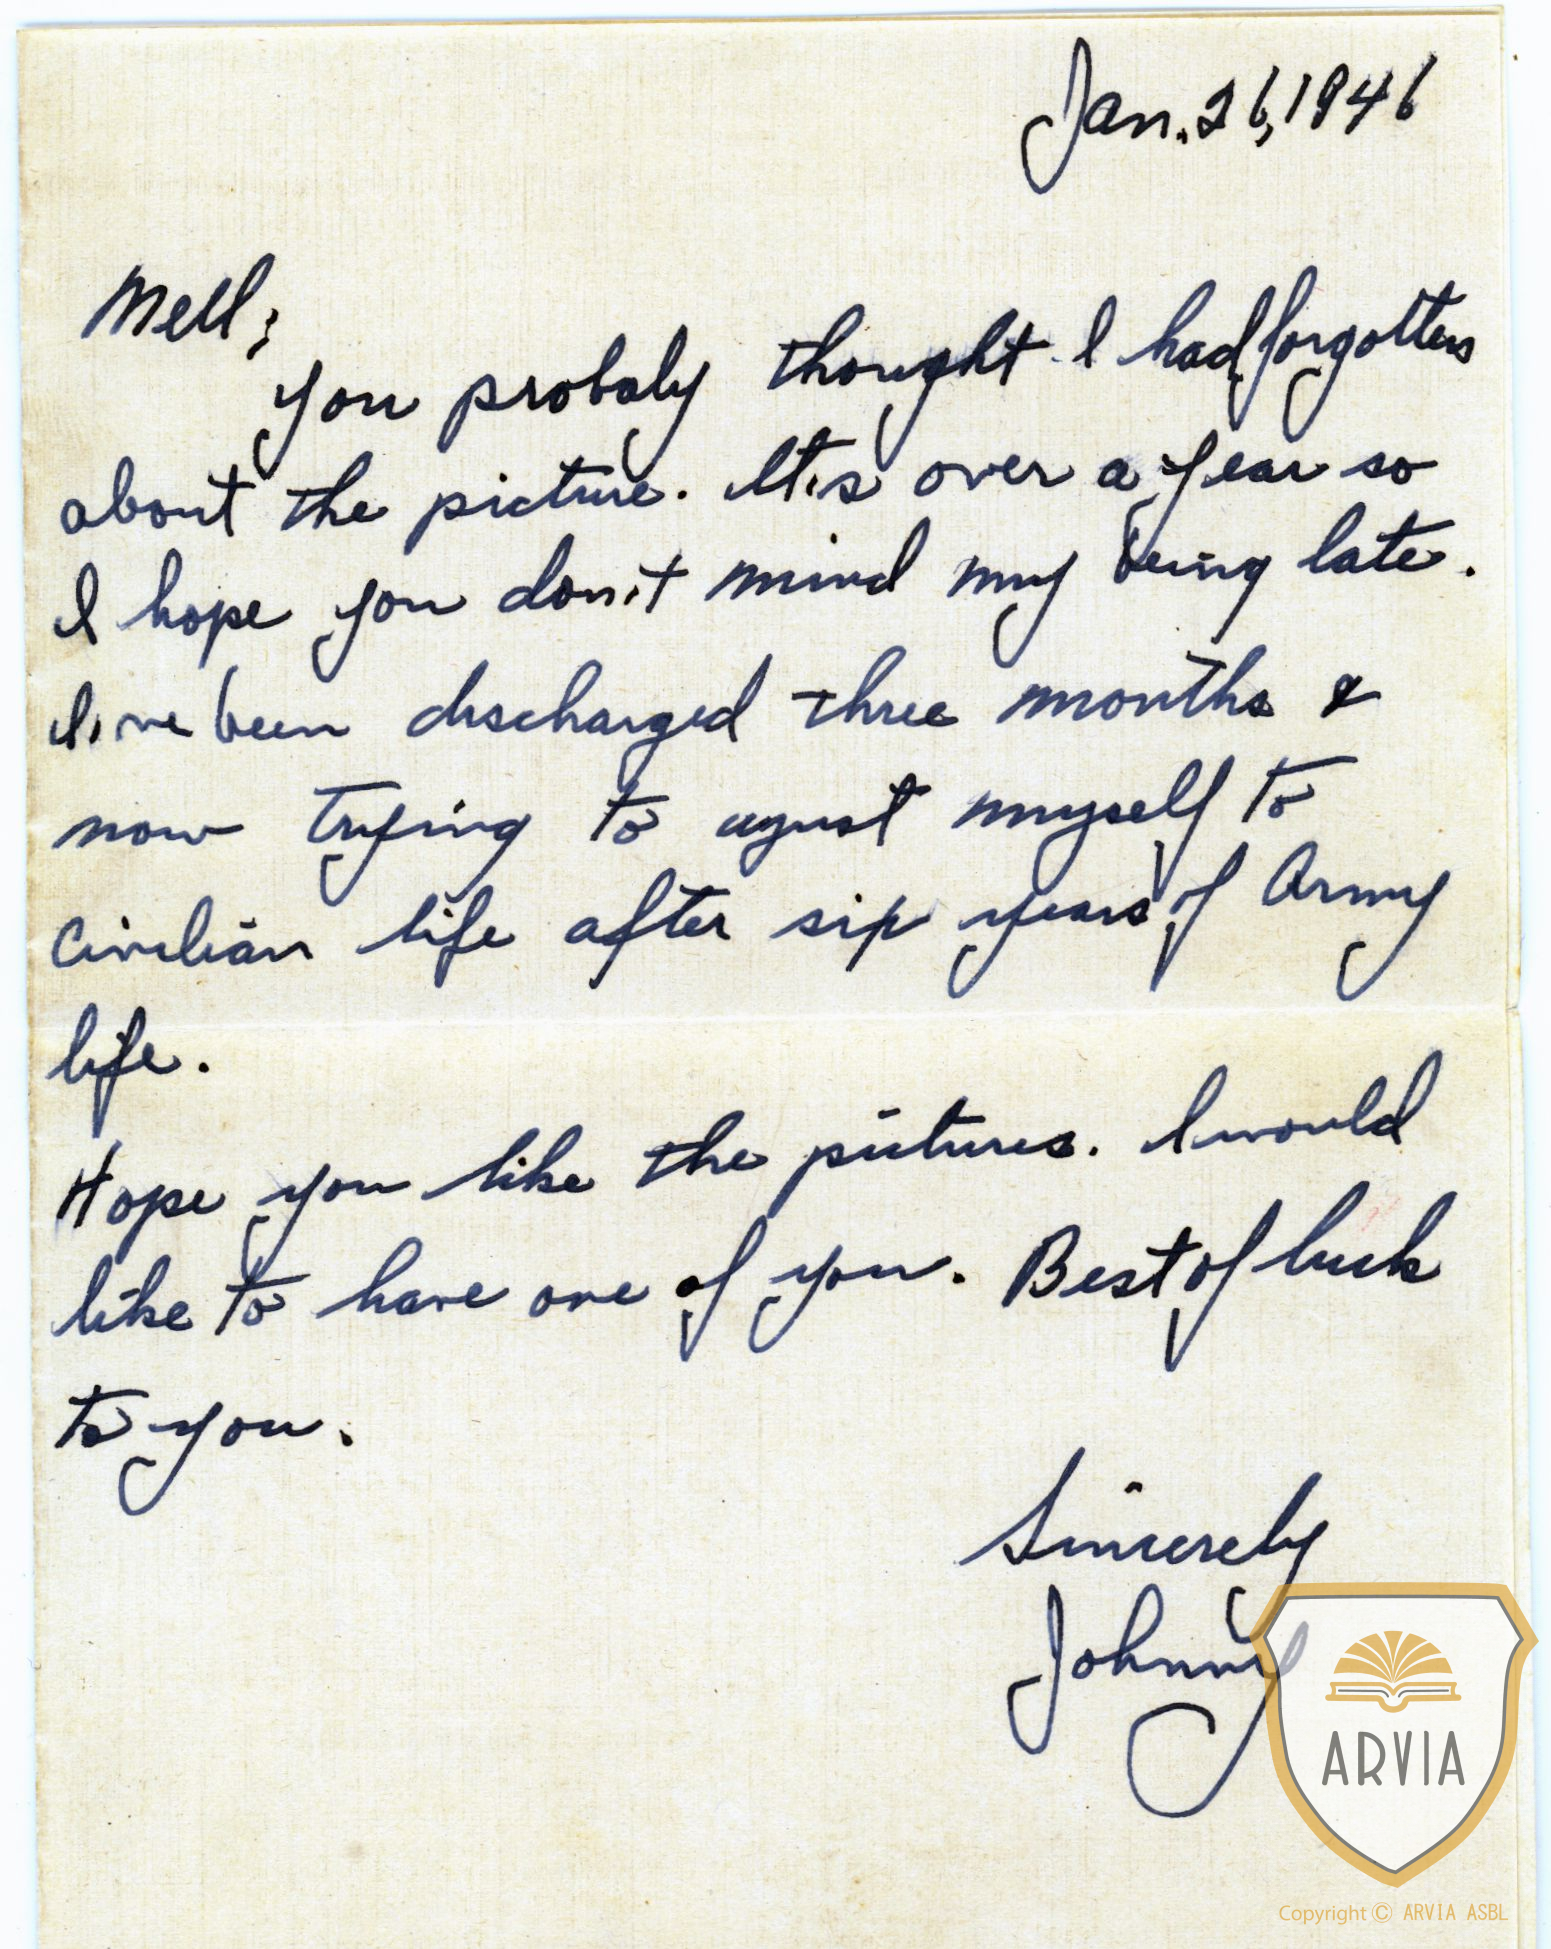 Jan. 26, 1946
Mell;
you probaly thought I had forgotten
about the picture. It's over a year so
I hope you don't mind my being late.
I've been discharged three months &
now trying to ajust myself to
civilian life after six years of Army
life.
Hope you like the pictures. I would
like to have one of you. Best of luck
to you.
Sincerely
Johnny
ARVIA
Copyright © ARVIA ASBL